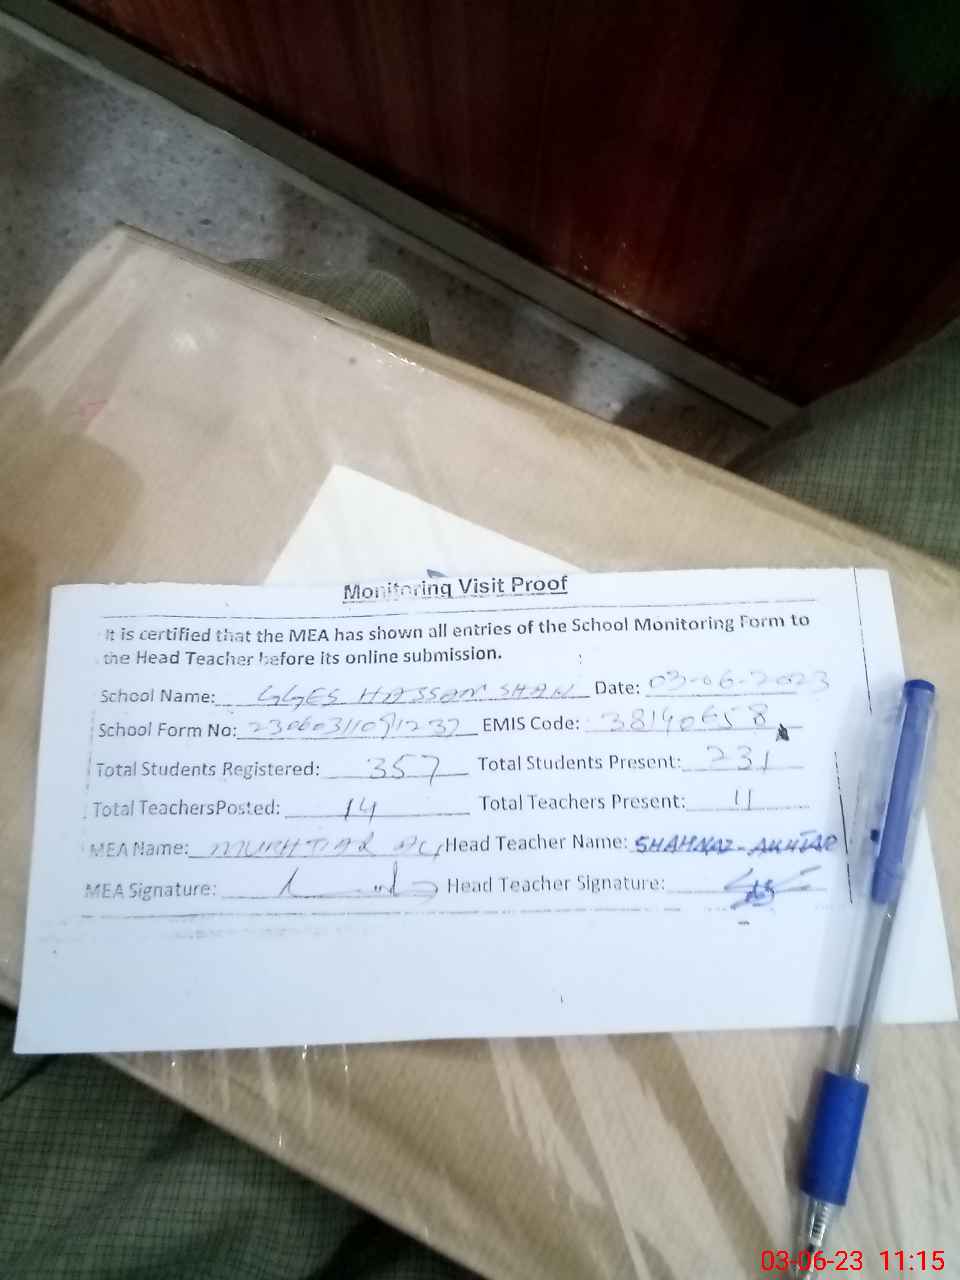 Monitoring Visit Proof
It is certified that the MEA has shown all entries of the School Monitoring Form to
the Head Teacher before its online submission.
School Name: GGES HASSAN SHAH Date: 03-06-2023
School Form No: EMIS Code: 38140658
Total Students Registered: 357 Total Students Present: 231
Total TeachersPosted: 14 Total Teachers Present: 11
MEA Name: MUKHTIAR Head Teacher Name: SHAHNAZ-AKHTAR
MEA Signature: Head Teacher Signature:
03-06-23 11:15